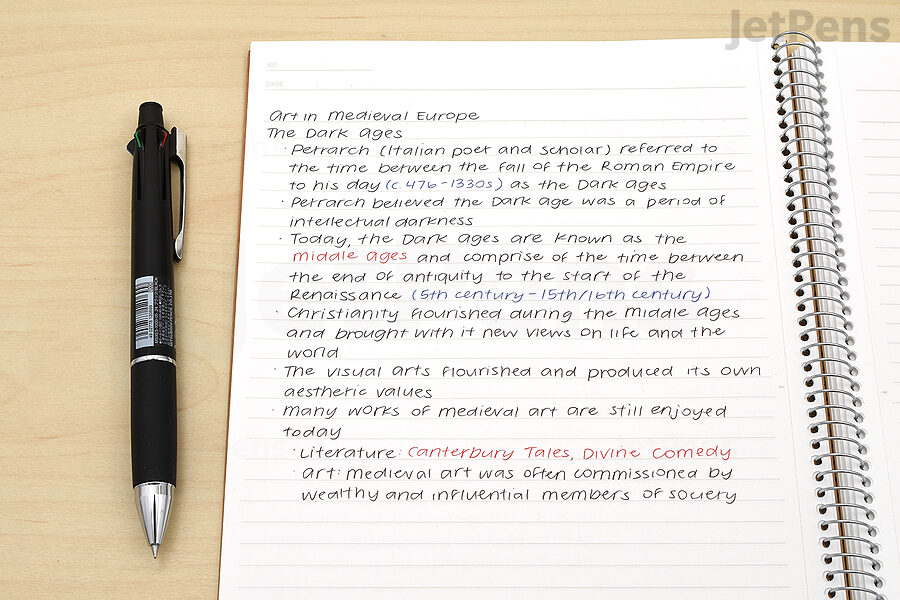 JetPens
NO.
DATE
Art in Medieval Europe
The Dark Ages
· Petrarch (Italian poet and scholar) referred to
the time between the fall of the Roman Empire
to his day (c. 476-1330s) as the Dark Ages
· Petrarch believed the Dark Age was a period of
intellectual darkness
· Today, the Dark Ages are known as the
middle ages and comprise of the time between
the end of antiquity to the start of the
Renaissance (5th century - 15th/16th century)
· Christianity flourished during the Middle Ages
and brought with it new views on life and the
world
· The visual arts flourished and produced its own
aesthetic values
· Many works of medieval art are still enjoyed
today
· Literature: Canterbury Tales, Divine Comedy
· Art: medieval art was often commissioned by
wealthy and influential members of society